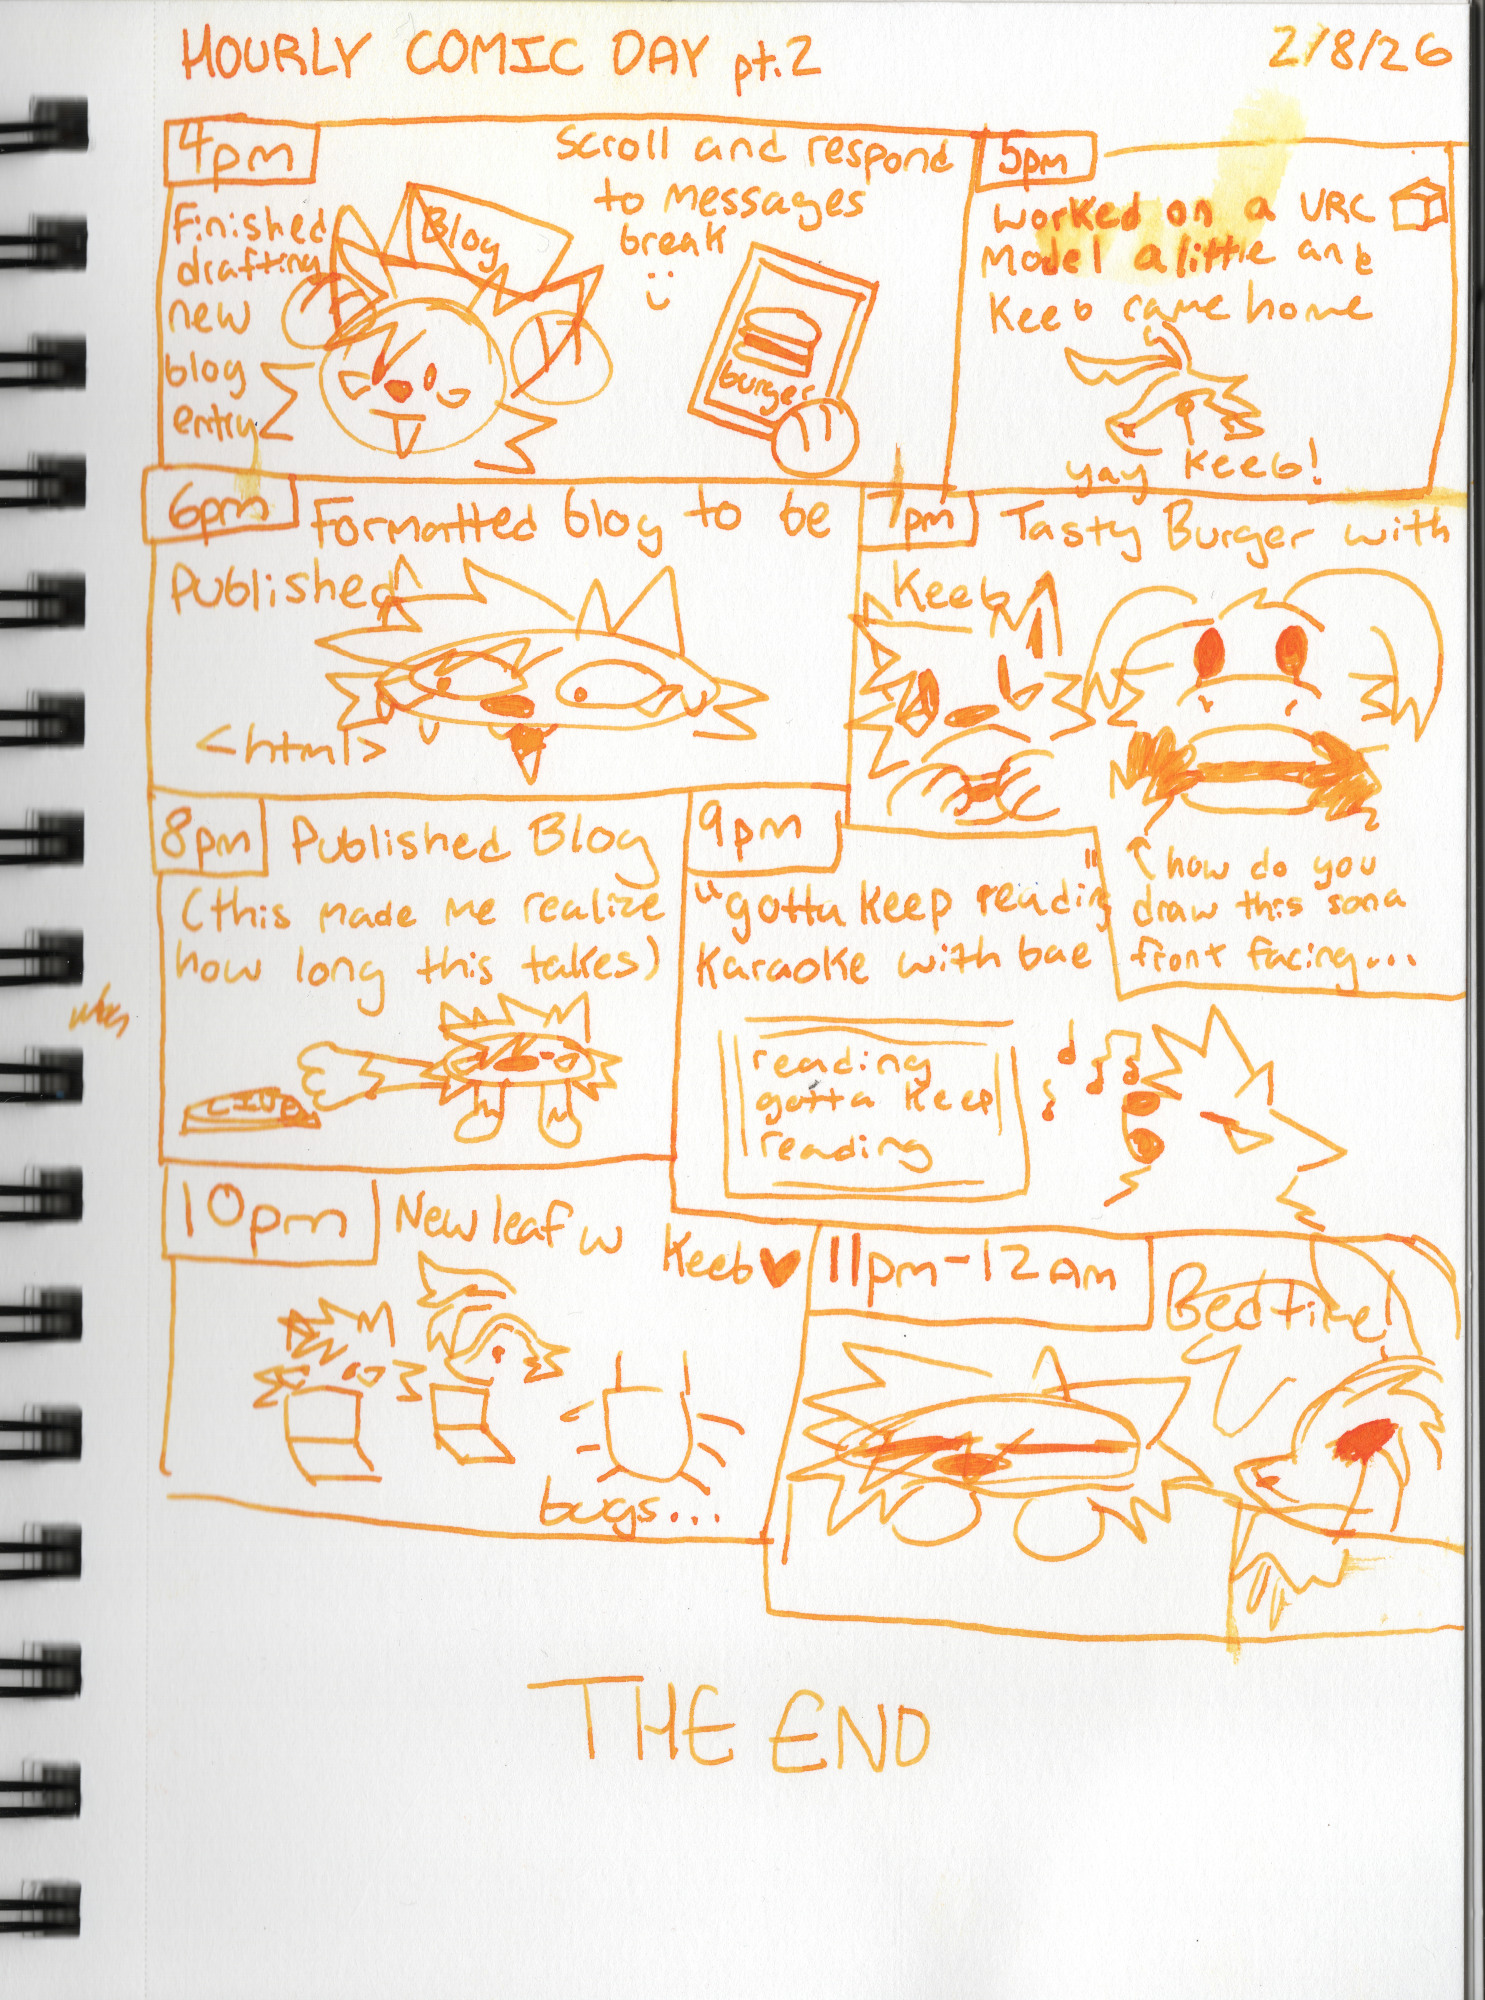 HOURLY COMIC DAY pt.2
2/8/26
4pm
Finished
drafting
new
blog
entry
Blog
Scroll and respond
to messages
break
burger
5pm
Worked on a VRC
Model a little and
Keeb came home
yay Keeb!
6pm
Formatted blog to be
Published
<html>
7pm
Tasty Burger with
Keeb
how do you
draw this sona
front facing...
8pm
Published Blog
(this made me realize
how long this takes)
LIVE
9pm
"gotta keep reading"
Karaoke with bae
reading
gotta keep
reading
10pm
New leaf w
Keeb
bugs...
11pm-12am
Bedtime!
THE END